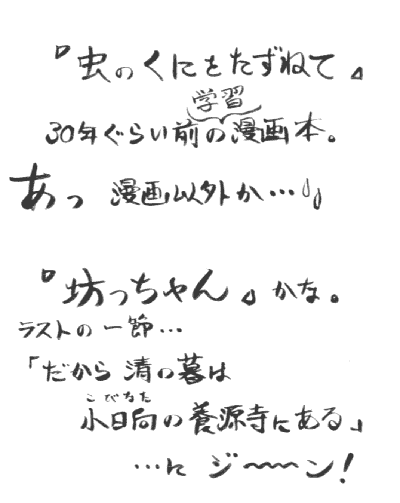 『虫のくにをたずねて』
学習
30年ぐらい前の漫画本。
あっ 漫画以外か…
『坊っちゃん』かな。
ラストの一節…
「だから清の墓は
こびなた
小日向の養源寺にある」
…に ジ〜〜〜ン!